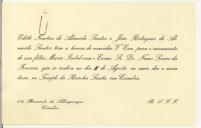 Edith Martins de Almeida Santos e João Rodrigues de Al-
meida Santos têm a honra de convidar V. Exa. para o casamento
de sua filha Maria Isabel com o Exmo. Sr. Dr. Nuno Soares da
Fonseca, que se realiza no dia 8 de Agosto, ao meio dia e meia
hora, no Templo da Rainha Santa, em Coimbra.
de Albuquerque
Coimbra
R. S. F. F.